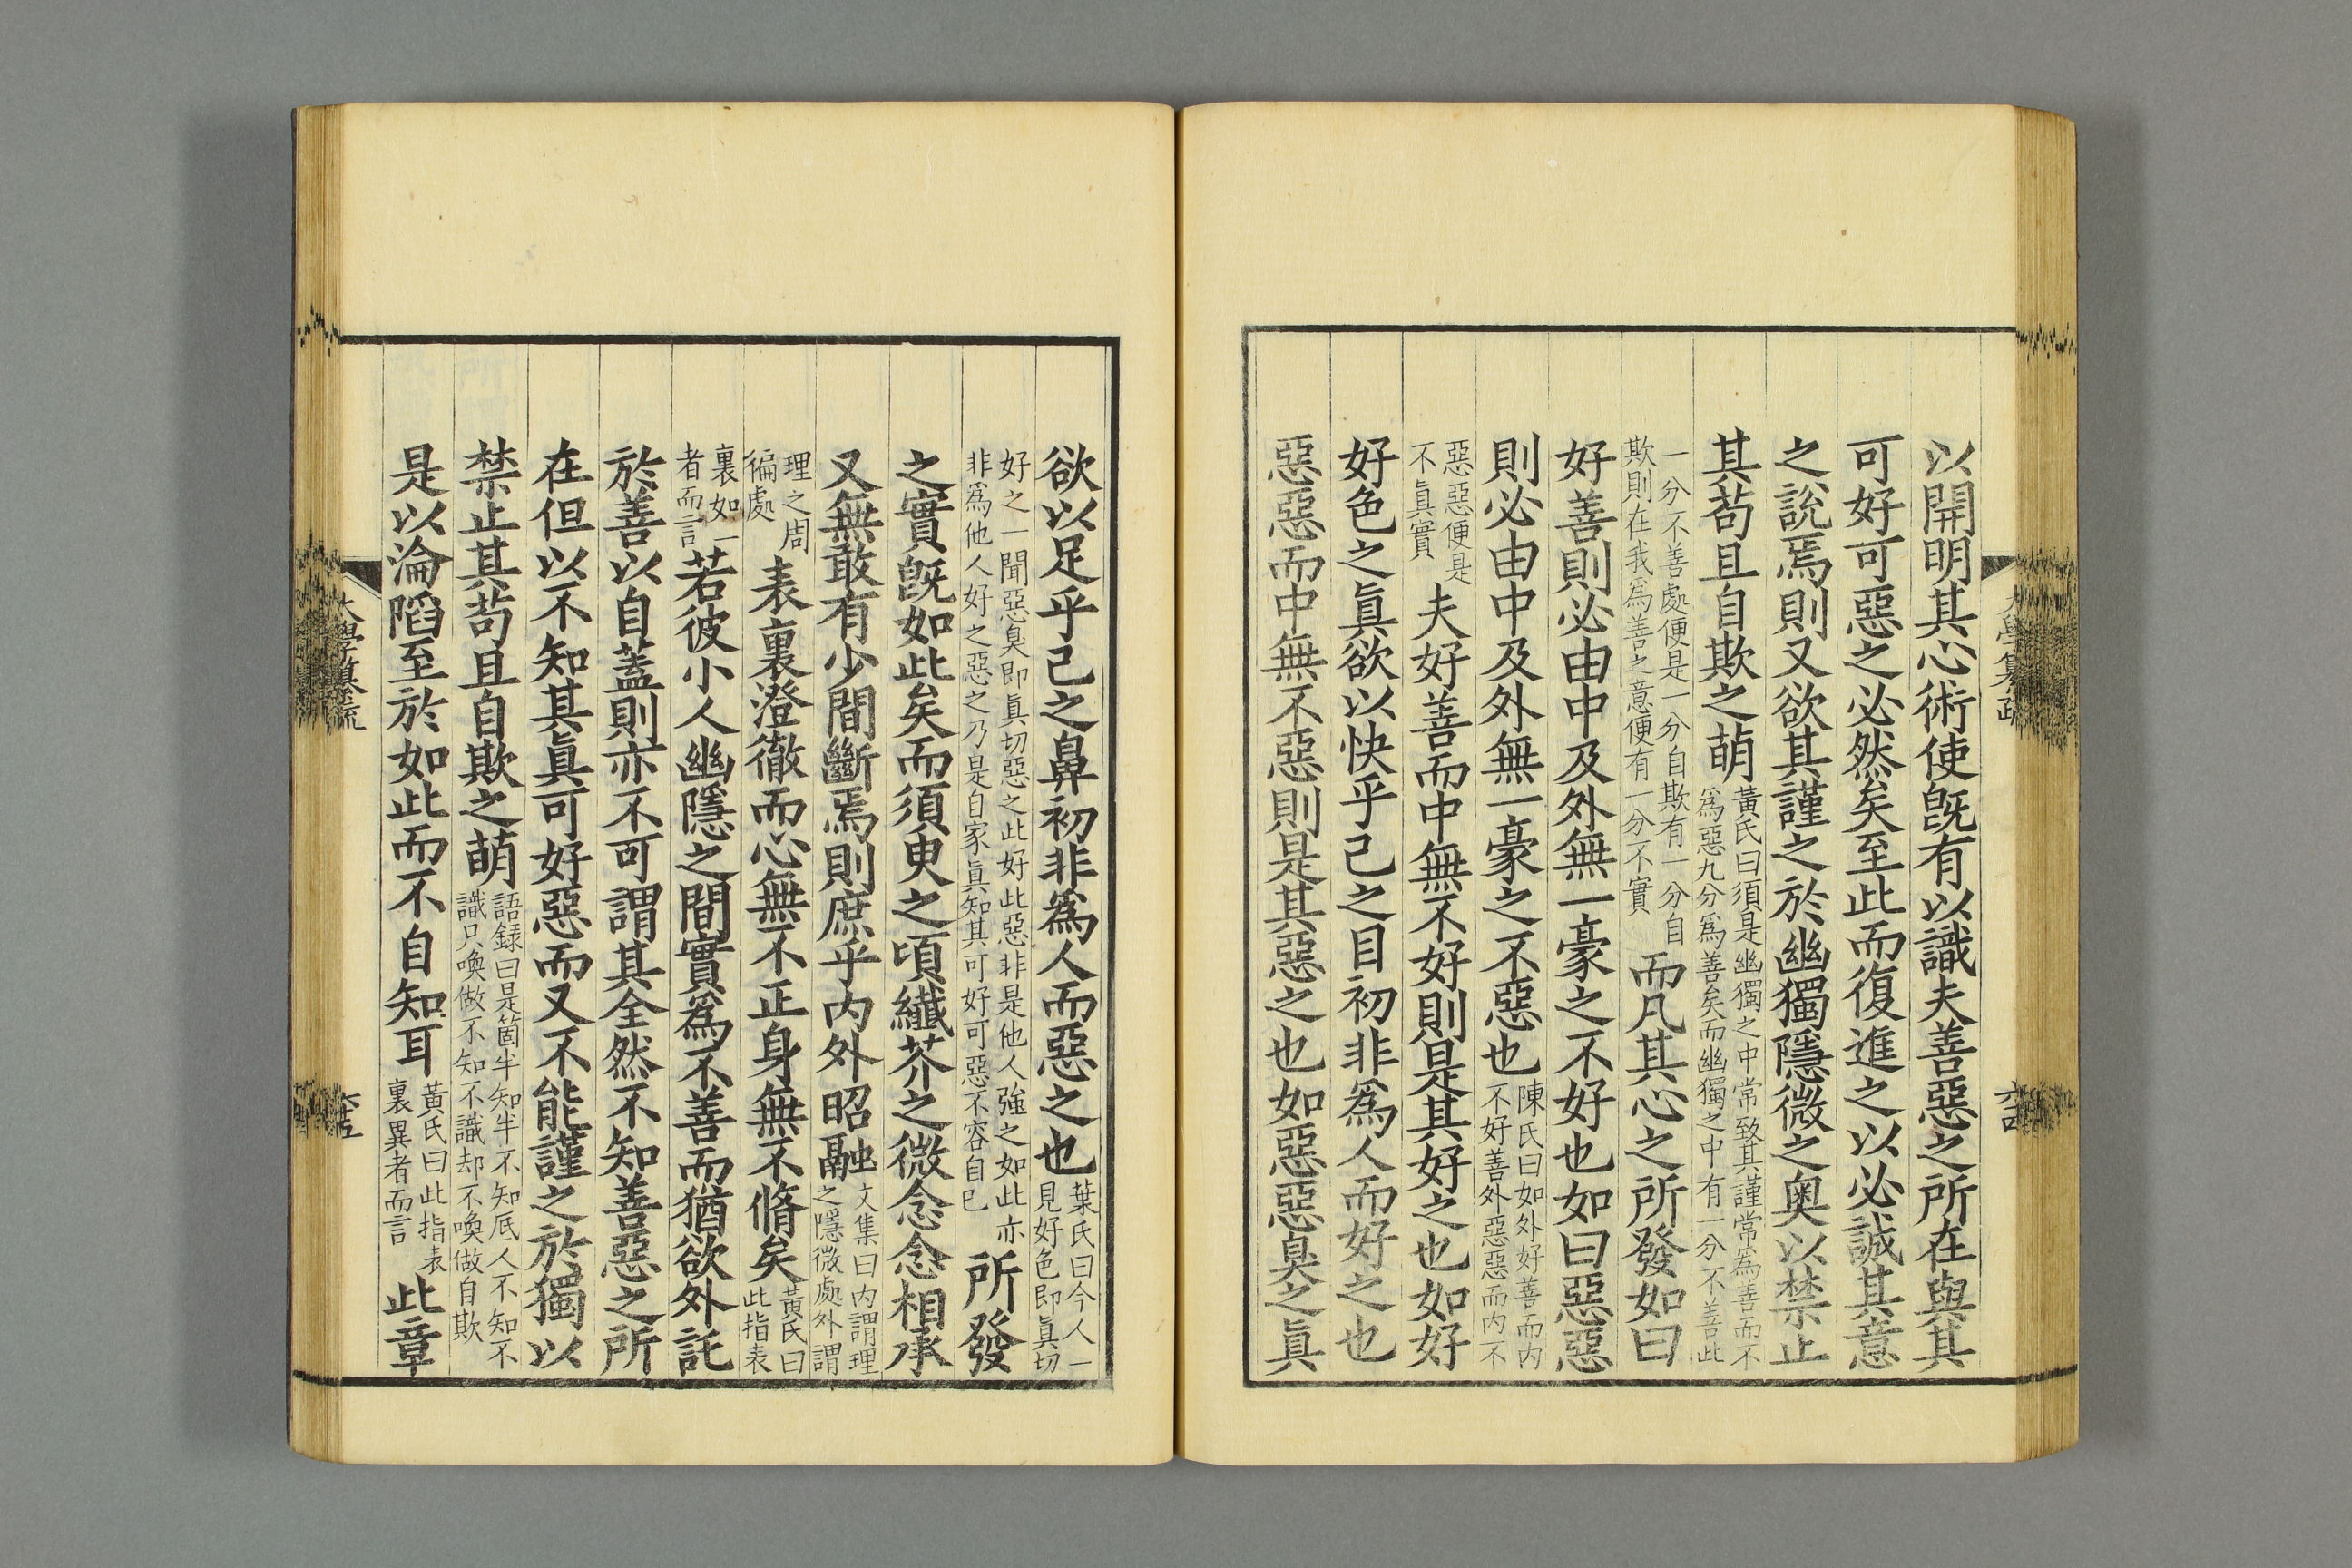 以開明其心術使既有以識夫善惡之所在與其
可好可惡之必然矣至此而復進之以必誠其意
之說焉則又欲其謹之於幽獨隱微之奧以禁止
其苟且自欺之萌黃氏曰須是幽獨之中常致其謹常爲善而不
爲惡九分爲善矣而幽獨之中有一分不善此
一分不善處便是一分自欺有一分自
欺則在我爲善之意便有一分不實
而凡其心之所發如曰
好善則必由中及外無一豪之不好也如曰惡惡
則必由中及外無一豪之不惡也陳氏曰如外好善而内
不好善外惡惡而内不
惡惡便是
不眞實
夫好善而中無不好則是其好之也如好
好色之眞欲以快乎己之目初非爲人而好之也
惡惡而中無不惡則是其惡之也如惡惡臭之眞
大學纂疏
六十四
欲以足乎己之鼻初非爲人而惡之也葉氏曰今人一
見好色即眞切
好之一聞惡臭即眞切惡之此好此惡非是他人強之如此亦
非爲他人好之惡之乃是自家眞知其可好可惡不容自已
所發
之實既如此矣而須臾之頃纖芥之微念念相承
又無敢有少間斷焉則庶乎内外昭融文集曰内謂理
之隱微處外謂
理之周
徧處
表裏澄徹而心無不正身無不脩矣黃氏曰
此指表
裏如一
者而言
若彼小人幽隱之間實爲不善而猶欲外託
於善以自蓋則亦不可謂其全然不知善惡之所
在但以不知其眞可好惡而又不能謹之於獨以
禁止其苟且自欺之萌語録曰是箇半知半不知厎人不知不
識只喚做不知不識却不喚做自欺
是以淪陷至於如此而不自知耳黃氏曰此指表
裏異者而言
此章
大學纂疏
六十五